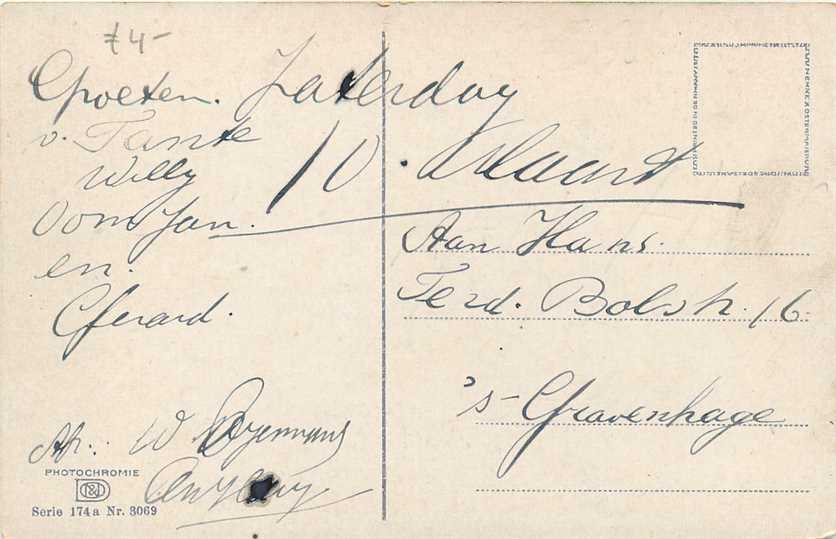 f 4-
Groeten. Zaterdag
v. Tante
Willy
10. Maart
Oom Jan.
en.
Gerard.
Aan Hans.
Ferd. Bolstr. 16
's-Gravenhage
Afz: W
PHOTOCHROMIE
Serie 174a Nr. 3069